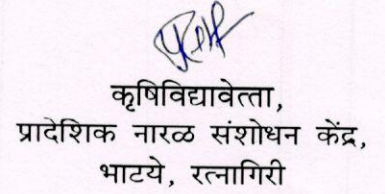 कृषिविद्यावेत्ता,
प्रादेशिक नारळ संशोधन केंद्र,
भाटये, रत्नागिरी